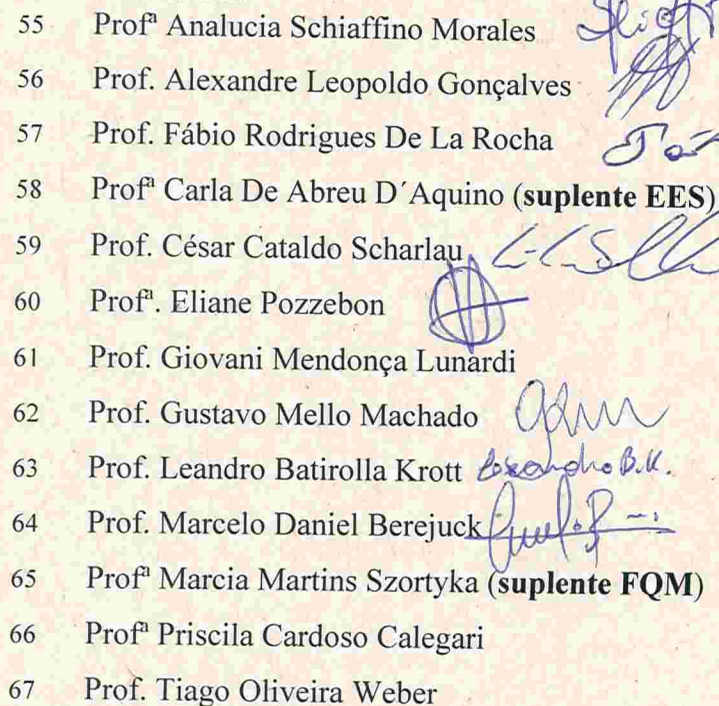 55 Profª Analucia Schiaffino Morales
56 Prof. Alexandre Leopoldo Gonçalves
57 Prof. Fábio Rodrigues De La Rocha
58 Profª Carla De Abreu D´Aquino (suplente EES)
59 Prof. César Cataldo Scharlau
60 Profª. Eliane Pozzebon
61 Prof. Giovani Mendonça Lunardi
62 Prof. Gustavo Mello Machado
63 Prof. Leandro Batirolla Krott Leandro B.K.
64 Prof. Marcelo Daniel Berejuck
65 Profª Marcia Martins Szortyka (suplente FQM)
66 Profª Priscila Cardoso Calegari
67 Prof. Tiago Oliveira Weber